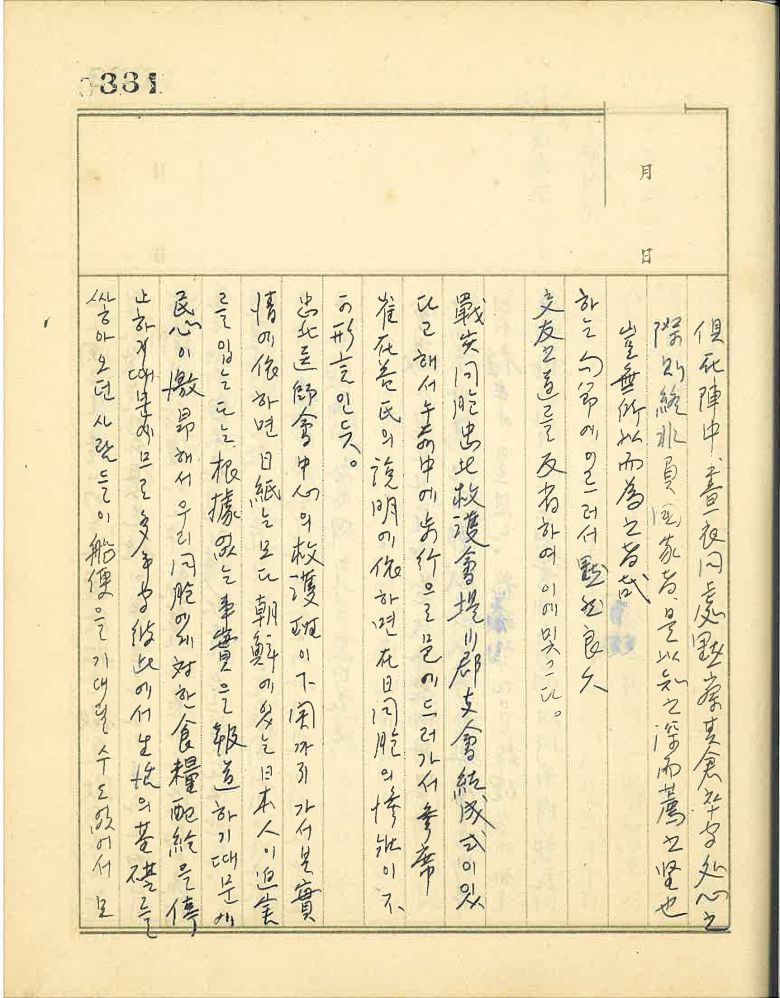 331
月 日
俱死陣中 晝夜同處 默察其倉卒字処心之
際則終非負國家者 是以知之深而薦之堅也
豈無所以而為之者哉
하는 句節에 이르러서 默然良久
交友之道를 反省하여 이에 및그다。
戰災同胞忠北救護會堤川郡支會結成式이 있
다고 해서 午前中에 步行으로 邑에 드러가서 參席
崔在益氏의 說明에 依하면 在日同胞의 慘狀이 不
可形言인 듯。
忠北医師會中心의 救護班이 下関까지 가서 본 實
情에 依하면 日紙는 모다 朝鮮에 있는 日本人이 迫害
를 입는다는 根據 없는 事實을 報道하기 때문에
民心이 激昻해서 우리 同胞에게 対한 食糧配給을 停
止하기 때문에 므로 多年 彼此에서 生活의 基礎를
쌓아 오던 사람들이 船便을 기대릴 수도 없어서 모